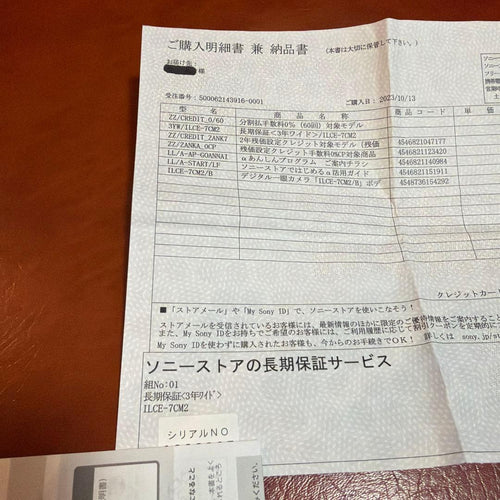 ご購入明細書 兼 納品書 (本書は大切に保管して下さい。)
お届け先:
様
受注番号: 500062143916-0001
ご購入日: 2023/10/13
型 名 商 品 名 称 商品コード 単 価
ZZ/CREDIT_0/60 分割払手数料0% (60回) 対象モデル
3YW/ILCE-7CM2 長期保証<3年ワイド>/ILCE-7CM2
ZZ/CREDIT_ZANK7 2年残価設定クレジット対象モデル (残価 4546821047177
ZZ/ZANKA_0CP 残価設定クレジット手数料0%CP対象商品
LL/A-AP-GOANNAI αあんしんプログラム ご案内チラシ 4546821123420
LL/A-START/LF ソニーストアではじめるα活用ガイド 4546821140984
ILCE-7CM2/B デジタル一眼カメラ「ILCE-7CM2/B」ボデ 4548736154292
4546821151911
クレジットカー
■「ストアメール」や「My Sony ID」で、ソニーストアを使いこなそう!
ストアメールを受信されているお客様には、最新情報のほかに限定のご優待情報をご案内すること
また、My Sony IDをお持ちでご希望のお客様には、ご利用履歴に応じて割引クーポンを定期的に
My Sony IDを使わずに購入されたお客様も、今からのお手続きでOK! 詳しくは sony.jp/st
ソニーストアの長期保証サービス
組No:01
長期保証<3年ワイド>
ILCE-7CM2
シリアルNO